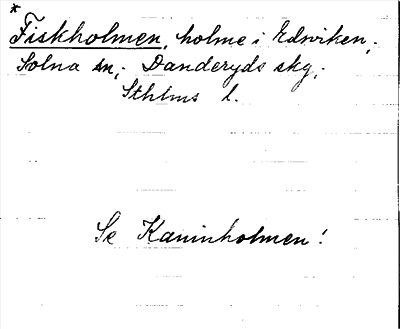 *
Fiskholmen, holme i Edsviken,
Solna sn; Danderyds skg;
Sthlms l.
Se Kaninholmen!